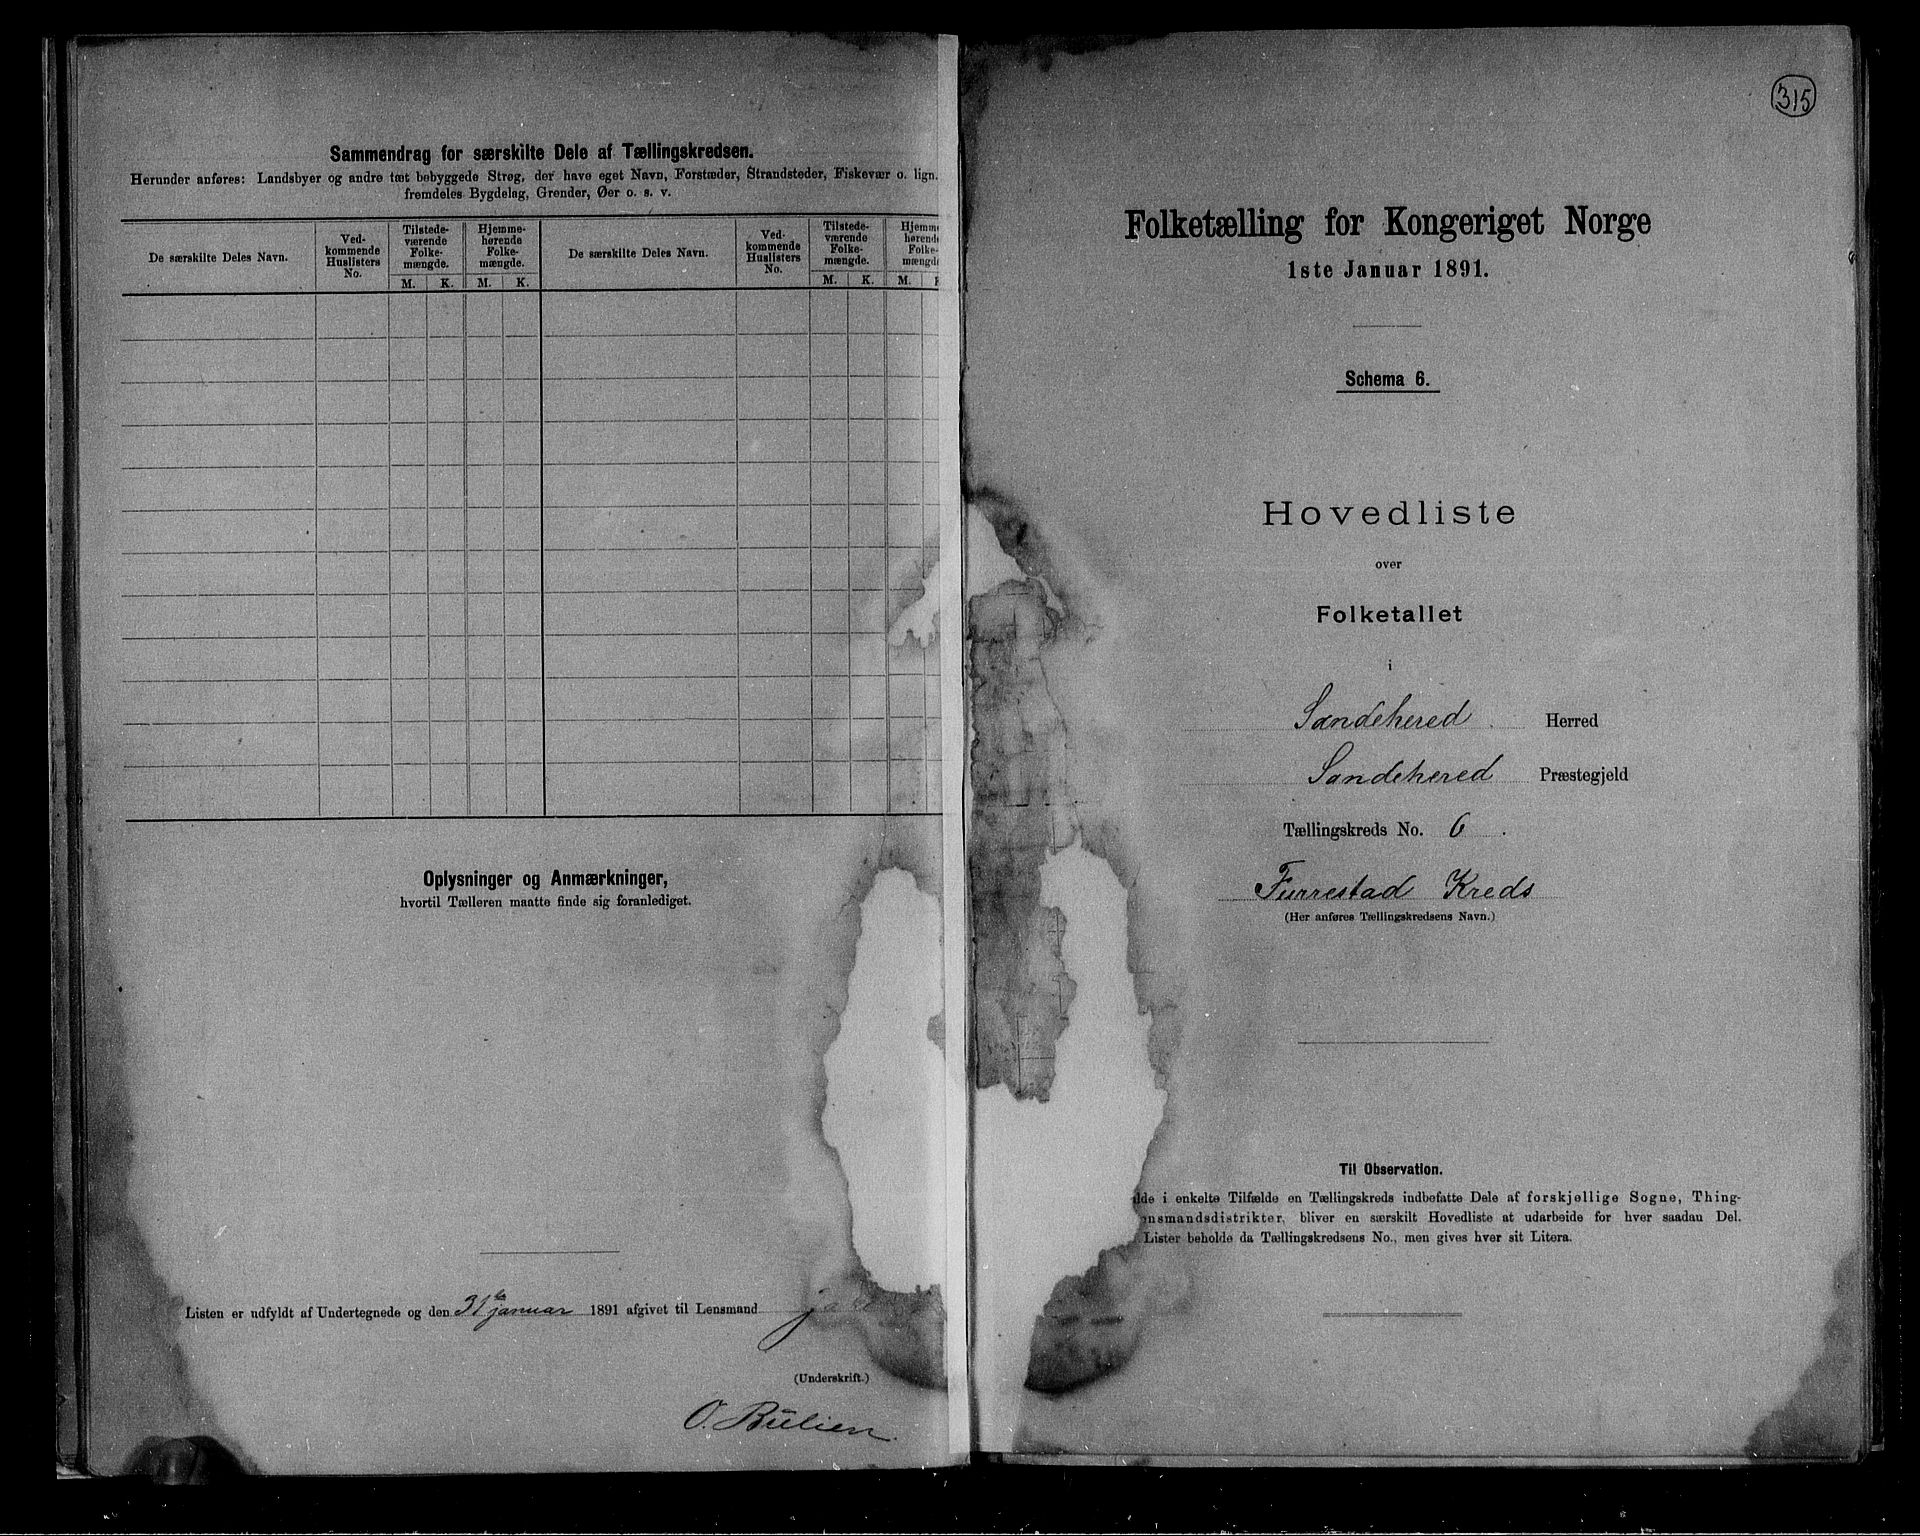 Sammendrag for særskilte Dele af Tællingskredsen.
Herunder anføres: Landsbyer og andre tæt bebyggede Strøg, der have eget Navn, Forstæder, Strandsteder, Fiskevær o. lign.
fremdeles Bygdelag, Grender, Øer o. s. v.
De særskilte Deles Navn.
Ved-
kommende
Huslisters
No.
Tilstede-
værende
Folke-
mængde.
Hjemme-
hørende
Folke-
mængde.
De særskilte Deles Navn.
Ved-
kommende
Huslisters
No.
Tilstede-
værende
Folke-
mængde.
Hjemme-
hørende
Folke-
mængde
M. K. M. K. M. K. M.
Oplysninger og Anmærkninger,
hvortil Tælleren maatte finde sig foranlediget.
Listen er udfyldt af Undertegnede og den 31te januar 1891 afgivet til Lensmand
(Underskrift.)
O. Bülien
315
Folketælling for Kongeriget Norge
1ste Januar 1891.
Schema 6.
Hovedliste
over
Folketallet
i
Sandehered Herred
Sandehered Præstegjeld
Tællingskreds No. 6.
Furrestad Kreds
(Her anføres Tællingskredsens Navn.)
Til Observation.
lde i enkelte Tilfælde en Tællingskreds indbefatte Dele af forskjellige Sogne, Thing-
ensmandsdistrikter, bliver en særskilt Hovedliste at udarbeide for hver saadan Del.
Lister beholde da Tællingskredsens No., men gives hver sit Litera.